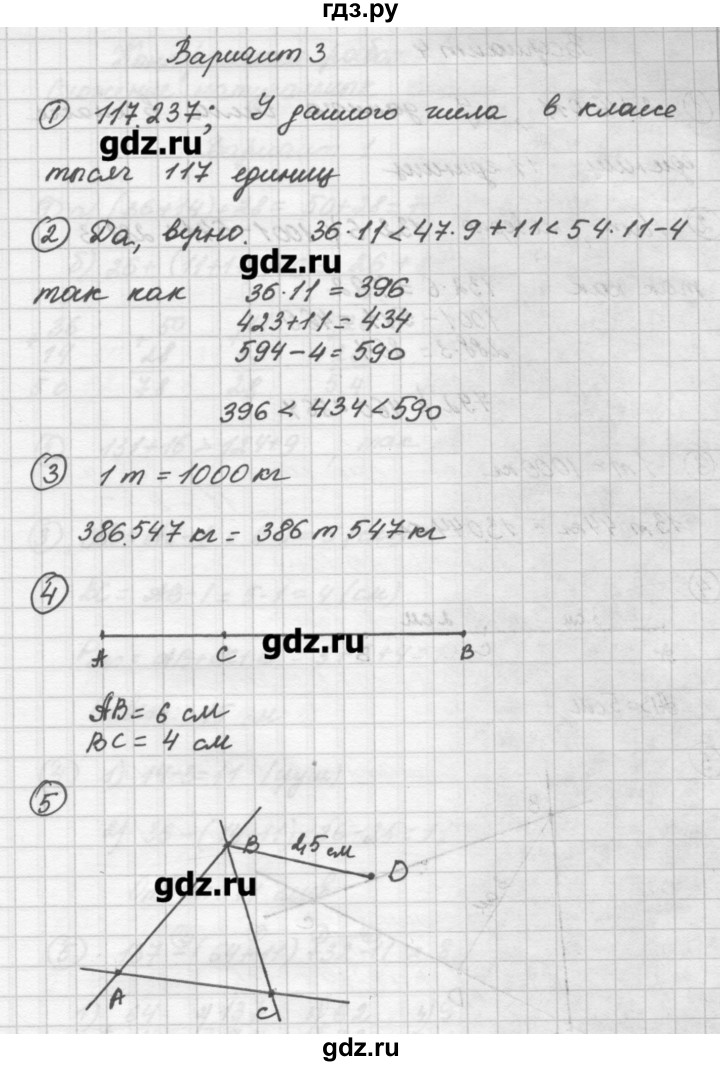 гдз.ру
Вариант 3
① 117.237; У данного числа в классе
gdz.ru
тысяч 117 единиц
② Да, верно. 36·11<47·9+11<54·11-4
gdz.ru
так как 36·11=396
423+11=434
594-4=590
396<434<590
③ 1 т = 1000 кг
386.547 кг = 386 т 547 кг
④
gdz.ru
A C B
AB = 6 см
BC = 4 см
⑤
B 2,5 см D
gdz.ru
A C
gdz.ru